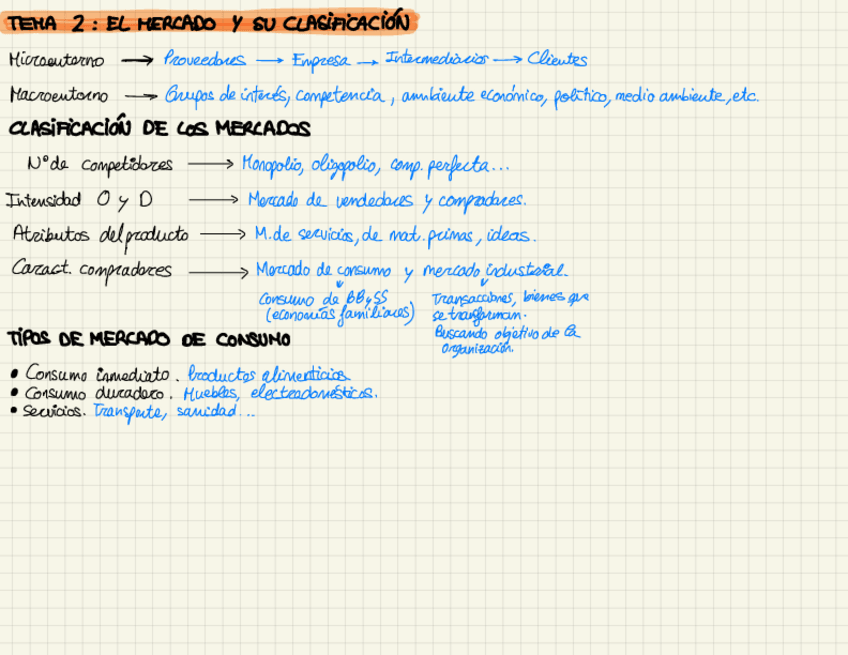 TEMA 2: EL MERCADO Y SU CLASIFICACIÓN
Microentorno → Proveedores → Empresa → Intermediarios → Clientes
Macroentorno → Grupos de interés, competencia, ambiente económico, político, medio ambiente, etc.
CLASIFICACIÓN DE LOS MERCADOS
Nº de competidores → Monopolio, oligopolio, comp. perfecta...
Intensidad O y D → Mercado de vendedores y compradores.
Atributos del producto → M. de servicios, de mat. primas, ideas.
Caract. compradores → Mercado de consumo y mercado industrial.
Consumo de BB y SS
(economías familiares)
Transacciones, bienes que
se transforman.
Buscando objetivo de la
organización.
TIPOS DE MERCADO DE CONSUMO
• Consumo inmediato. Productos alimenticios.
• Consumo duradero. Muebles, electrodomésticos.
• Servicios. Transporte, sanidad...